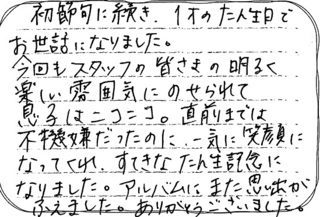 初節句に続き、1才のたん生日で
お世話になりました。
今回もスタッフの皆さまの明るく
楽しい雰囲気にのせられて
息子はニコニコ。直前までは
不機嫌だったのに、一気に笑顔に
なってくれ、すてきなたん生記念に
なりました。アルバムにまた思い出が
ふえました。ありがとうございました。